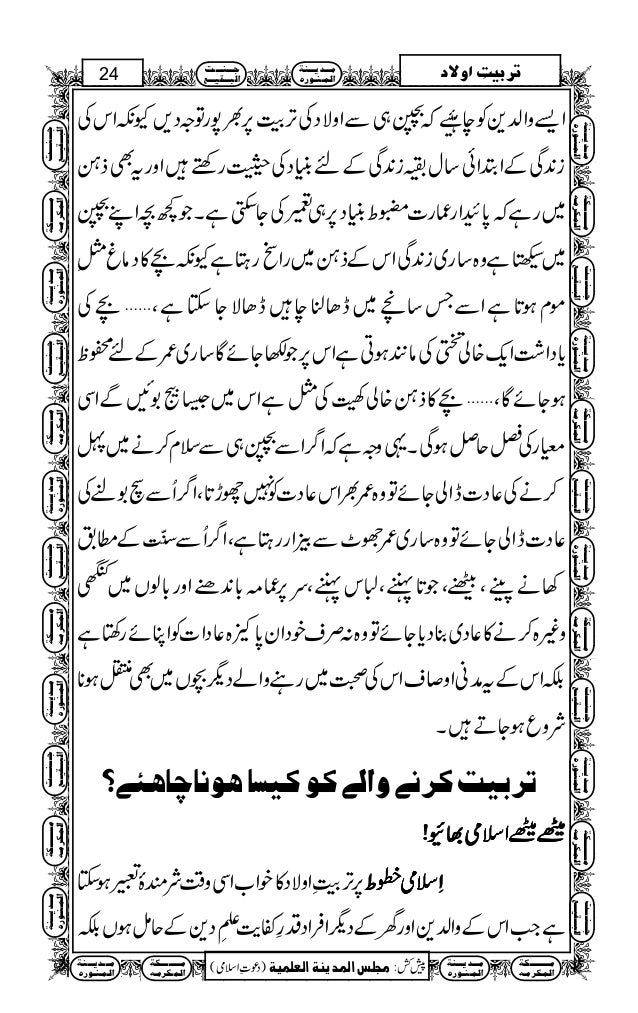 24
جنت البقیع
مدینۃ المنورہ
تربیتِ اولاد
ایسے والدین کو چاہئیے کہ بچپن ہی سے اولاد کی تربیت پر بھر پور توجہ دیں کیونکہ اس کی
زندگی کے ابتدائی سال بقیہ زندگی کے لئے بنیاد کی حیثیت رکھتے ہیں اور یہ بھی ذہن
میں رہے کہ پائیدار عمارت مضبوط بنیاد پر ہی تعمیر کی جاسکتی ہے۔ جو کچھ بچہ اپنے بچپن
میں سیکھتا ہے وہ ساری زندگی اس کے ذہن میں راسخ رہتا ہے کیونکہ بچے کا دماغ مثلِ
موم ہوتا ہے اسے جس سانچے میں ڈھالنا چاہیں ڈھالا جا سکتا ہے ،...... بچے کی
یاداشت ایک خالی تختی کی مانند ہوتی ہے اس پر جو لکھا جائے گا ساری عمر کے لئے محفوظ
ہو جائے گا،...... بچے کا ذہن خالی کھیت کی مثل ہے اس میں جیسا بیج بوئیں گے اسی
معیار کی فصل حاصل ہوگی۔ یہی وجہ ہے کہ اگر اسے بچپن ہی سے سلام کرنے میں پہل
کرنے کی عادت ڈالی جائے تو وہ عمر بھر اس عادت کو نہیں چھوڑتا، اگر اُسے سچ بولنے کی
عادت ڈالی جائے تو وہ ساری عمر جھوٹ سے بیزار رہتا ہے، اگر اُسے سنّت کے مطابق
کھانے پینے ، بیٹھنے، جوتا پہننے ، لباس پہننے ،سر پر عمامہ باندھنے اور بالوں میں کنگھی
وغیرہ کرنے کا عادی بنادیا جائے تو وہ نہ صرف خود ان پاکیزہ عادات کو اپنائے رکھتا ہے
بلکہ اس کے یہ مدنی اوصاف اس کی صحبت میں رہنے والے دیگر بچوں میں بھی منتقل ہونا
شروع ہو جاتے ہیں ۔
تربیت کرنے والے کو کیسا ہونا چاہئے؟
میٹھے میٹھے اسلامی بھائیو!
اِسلامی خطوط پر تربیتِ اولاد کا خواب اسی وقت شرمندۂ تعبیر ہوسکتا
ہے جب اس کے والدین اور گھر کے دیگر افراد قدرِ کفایت علمِ دین کے حامل ہوں بلکہ
پیش کش: مجلس المدینۃ العلمیۃ (دعوتِ اسلامی)
مدینۃ المنورہ
مکۃ المکرمہ